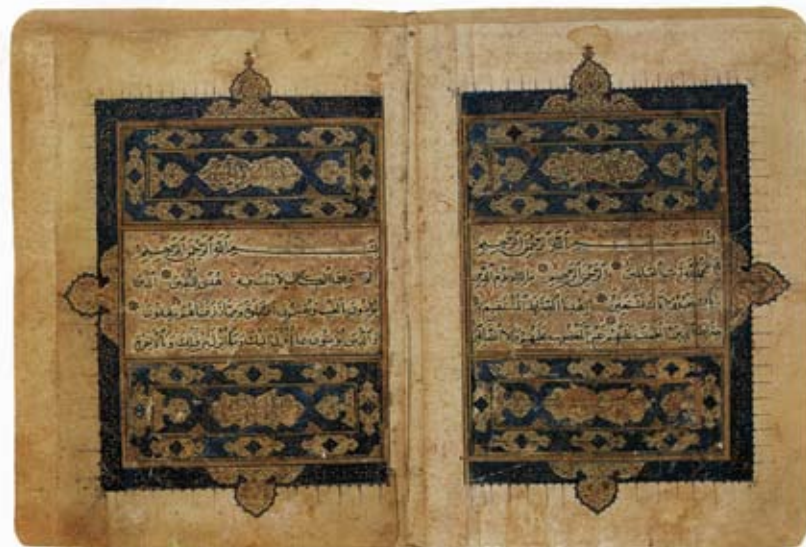 بسم الله الرحمن الرحيم
الحمد لله رب العالمين الرحمن الرحيم مالك يوم الدين
إياك نعبد وإياك نستعين اهدنا الصراط المستقيم
صراط الذين أنعمت عليهم غير المغضوب عليهم ولا الضالين
بسم الله الرحمن الرحيم
الم ذلك الكتاب لا ريب فيه هدى للمتقين الذين
يؤمنون بالغيب ويقيمون الصلوة ومما رزقناهم ينفقون
والذين يؤمنون بما أنزل إليك وما أنزل من قبلك وبالآخرة